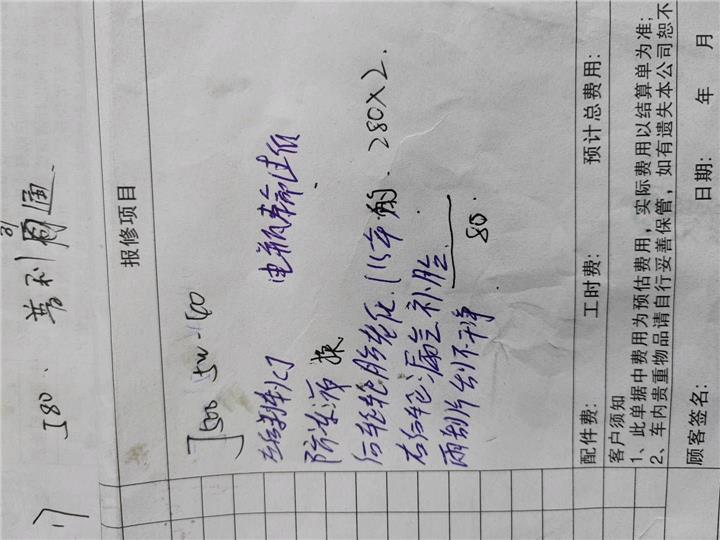 580. 普利司通
报修项目
J500 5W-40
防冻液 换
后轮轮胎老化. (15年的. 280X2.
右后轮漏气补胎.
雨刮片刮不干净 80.
配件费: 工时费: 预计总费用:
客户须知
1、此单据中费用为预估费用，实际费用以结算单为准;
2、车内贵重物品请自行妥善保管，如有遗失本公司恕不
顾客签名: 日期: 年 月